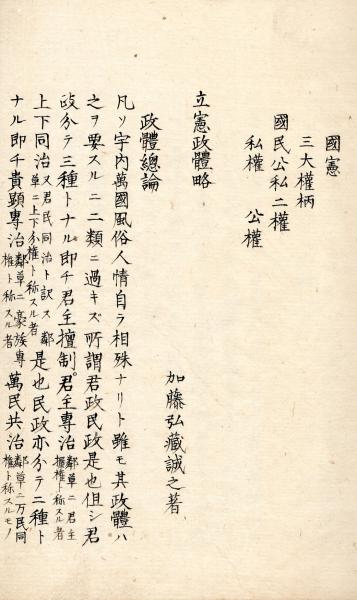 國憲
三大權柄
國民公私二權
私權　公權
立憲政體略
加藤弘藏誠之著
政體總論
凡ソ宇内萬國風俗人情自ラ相殊ナリト雖モ其政體ハ
之ヲ要スルニ二類ニ過キズ所謂君政民政是也但シ君
政分テ三種トナル即チ君主擅制。君主專治鄰草ニ君主擅權ト称スル者
上下同治又君民同治ト訳ス鄰草ニ上下分權ト称スル者是也民政亦分テ二種ト
ナル即チ貴顕專治鄰草ニ豪族專權ト称スル者萬民共治鄰草ニ万民同權ト称スルモノ